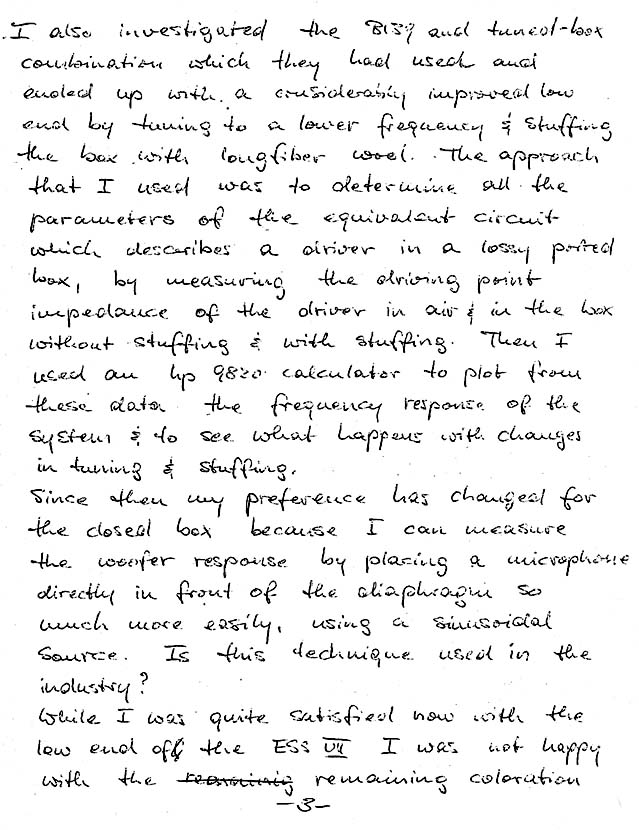 I also investigated the B139 and tuned-box
combination which they had used and
ended up with a considerably improved low
end by tuning to a lower frequency & stuffing
the box with longfiber wool. The approach
that I used was to determine all the
parameters of the equivalent circuit
which describes a driver in a lossy ported
box, by measuring the driving point
impedance of the driver in air & in the box
without stuffing & with stuffing. Then I
used an hp 9820 calculator to plot from
these data the frequency response of the
system & to see what happens with changes
in tuning & stuffing.
Since then my preference has changed for
the closed box because I can measure
the woofer response by placing a microphone
directly in front of the diaphragm so
much more easily, using a sinusoidal
source. Is this technique used in the
industry?
While I was quite satisfied now with the
low end of the ESS VII I was not happy
with the remaining coloration
-3-